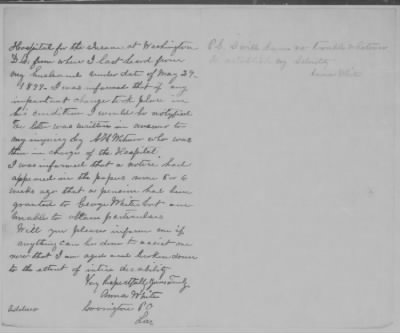 Hospital for the Insane at Washington
D.C. from where I last heard from
my husband under date of May 29.
1899. I was informed that if any
important change took place in
his condition I would be notified
The letter was written in answer to
my inquiry by A H Witmer who was
then in charge of the Hospital.
I was informed that a notice had
appeared in the papers some 5 or 6
weeks ago that a pension had been
granted to George White but am
unable to obtain particulars
Will you please inform me if
anything can be done to assist me
now that I am aged and broken down
to the extent of intire disability
Very Respectfully Yours truly,
Anna White
Address Covington P O
La
P.S. I will have no trouble whatever
to establish my identity
Anna White